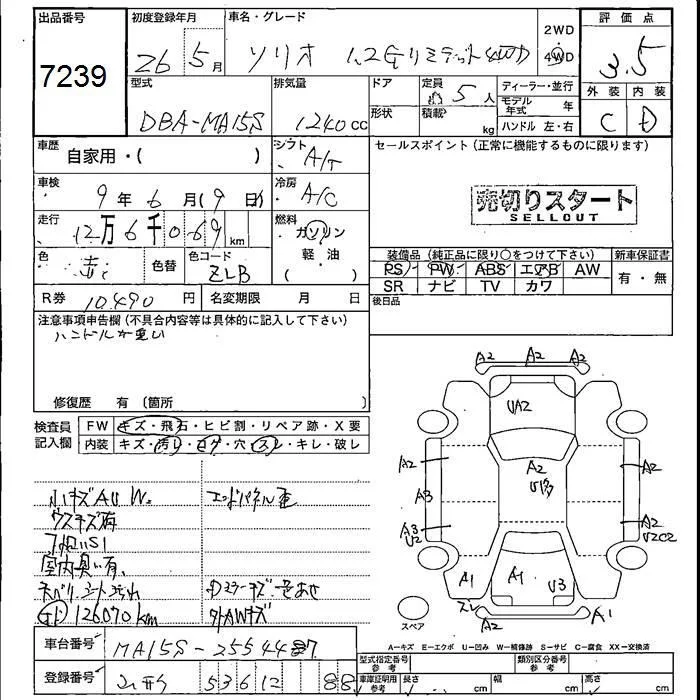 出品番号 初度登録年月 車名・グレード 2WD 評価点
7239 26 5月 ソリオ 1.2Gリミテッド4WD 4WD 3.5
型式 排気量 ドア 定員 5人 ディーラー・並行 外装 内装
DBA-MA15S 1240cc 形状 積載 kg モデル年式 年 C D
ハンドル 左・右
車歴 自家用・( ) シフト A/T セールスポイント (正常に機能するものに限ります)
車検 9年6月(9日) 冷房 A/C
売切りスタート
SELLOUT
走行 12万6千069km 燃料 ガソリン
軽・油
( )
色 赤 色替 色コード ZLB
装備品 (純正品に限り○をつけて下さい) 新車保証書
PS PW ABS エアB AW 有・無
SR ナビ TV カワ
R券 10,490円 名変期限 月 日 後日品
注意事項申告欄 (不具合内容等は具体的に記入して下さい)
ハンドルが重い
修復歴 有 (箇所 )
検査員記入欄 FW キズ・飛石・ヒビ割・リペア跡・X要
内装 キズ・汚れ・コゲ・穴・スレ・キレ・破レ
小キズAU W. エンドパネル歪
ウスキズ有
室内臭い有
126070km 外AWキズ
A2 A2 A2
UA2
A2 A2 A2
A3
A3 U2 A2 U2C2
A1 A1 U3
スレ A2 A1
スペア
車台番号 MA15S-255447
A-キズ E-エクボ U-凹み W-補修跡 S-サビ C-腐食 XX-交換済
型式指定番号 参考 類別区分番号 参考
登録番号 536 12 88
車庫証明用 参考 長さ cm 幅 cm 高さ cm